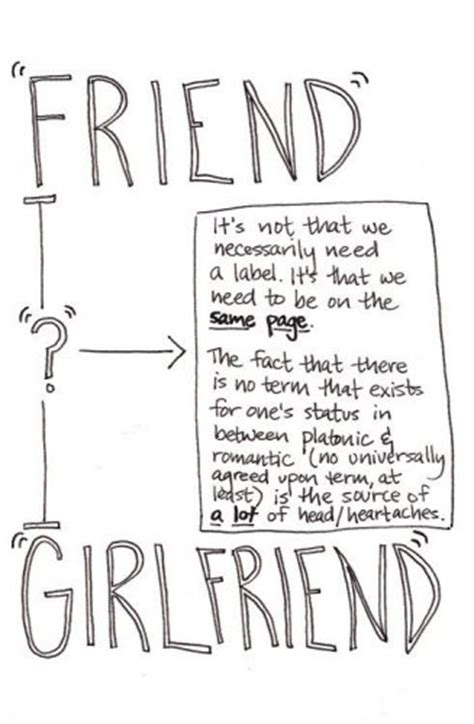 "FRIEND"
It's not that we
necessarily need
a label. It's that we
need to be on the
same page.
"?"
The fact that there
is no term that exists
for one's status in
between platonic &
romantic (no universally
agreed upon term, at
least) is the source of
a lot of head/heartaches.
"GIRLFRIEND"